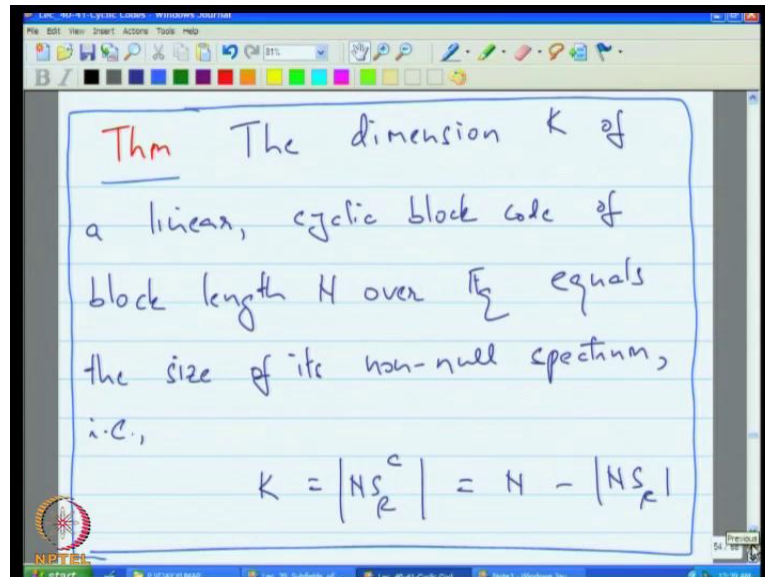 Lec_40-41-Cyclic Codes - Windows Journal
File Edit View Insert Actions Tools Help
81%
B I
Thm The dimension K of
a linear, cyclic block code of
block length N over F_q equals
the size of its non-null spectrum,
i.e.,
K = |NS_e^c| = N - |NS_e|
Previous
54 / 68
NPTEL
start
12:39 AM